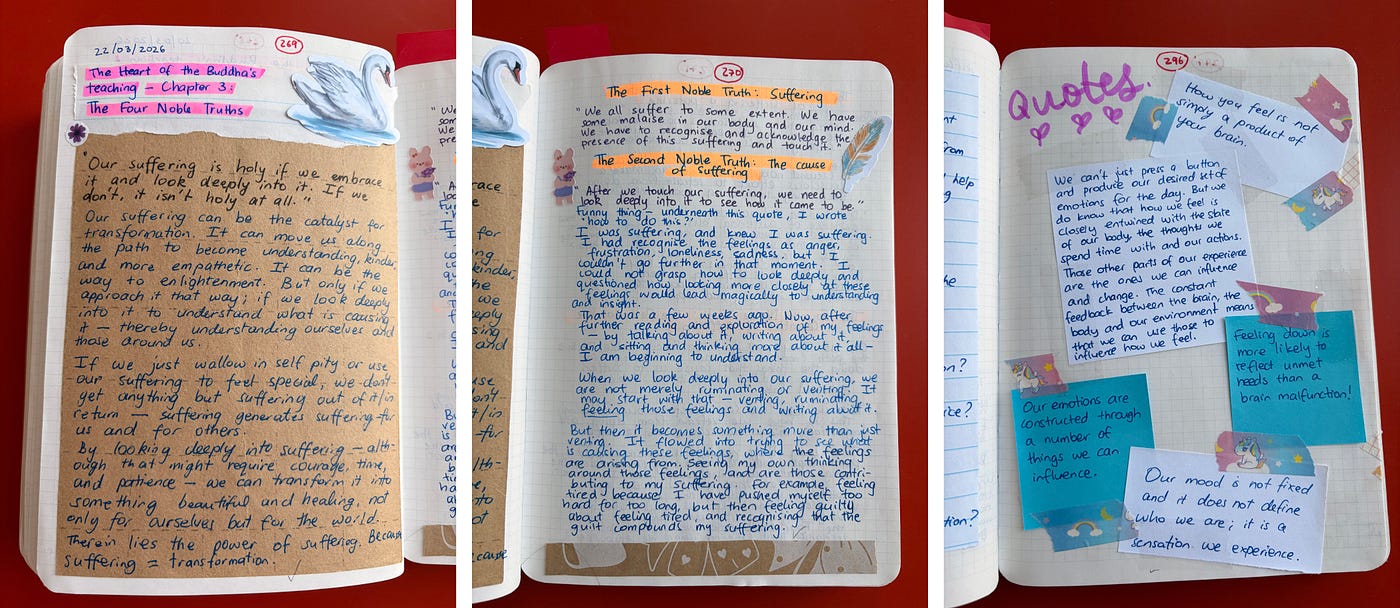 22/03/2026
269
The Heart of the Buddha's
teaching – Chapter 3:
The Four Noble Truths
"Our suffering is holy if we embrace
it and look deeply into it. If we
don't, it isn't holy at all."
Our suffering can be the catalyst for
transformation. It can move us along
the path to become understanding, kinder,
and more empathetic. It can be the
way to enlightenment. But only if we
approach it that way; if we look deeply
into it to understand what is causing
it — thereby understanding ourselves and
those around us.
If we just wallow in self pity or use
our suffering to feel special, we don't
get anything but suffering out of it/in
return — suffering generates suffering for
us and for others.
By looking deeply into suffering – alth-
ough that might require courage, time,
and patience – we can transform it into
something beautiful and healing, not
only for ourselves but for the world.
Therein lies the power of suffering. Because
suffering = transformation.
270
The First Noble Truth: Suffering
"We all suffer to some extent. We have
some malaise in our body and our mind.
We have to recognise and acknowledge the
presence of this suffering and touch it."
The Second Noble Truth: The cause
of suffering
"After we touch our suffering, we need to
look deeply into it to see how it came to be."
funny thing – underneath this quote, I wrote
"how to do this?"
I was suffering, and knew I was suffering.
I had recognise the feelings as anger,
frustration, loneliness, sadness, but I
couldn't go further in that moment. I
could not grasp how to look deeply and
questioned how looking more closely at these
feelings would lead magically to understanding
and insight.
That was a few weeks ago. Now, after
further reading and exploration of my feelings
– by talking about it, writing about it,
and sitting and thinking more about it all –
I am beginning to understand.
When we look deeply into our suffering, we
are not merely ruminating or venting. It
may start with that – venting, ruminating,
feeling those feelings and writing about it.
But then it becomes something more than just
venting. It flowed into trying to see what
is causing these feelings, where the feelings
are arising from. Seeing my own thinking
around those feelings, and are those contri-
buting to my suffering. For example, feeling
tired because I have pushed myself too
hard for too long, but then feeling guilty
about feeling tired, and recognising that the
guilt compounds my suffering.
296
Quotes.
How you feel is not
simply a product of
your brain.
We can't just press a button
and produce our desired set of
emotions for the day. But we
do know that how we feel is
closely entwined with the state
of our body, the thoughts we
spend time with and our actions.
Those other parts of our experience
are the ones we can influence
and change. The constant
feedback between the brain, the
body and our environment means
that we can use those to
influence how we feel.
Feeling down is
more likely to
reflect unmet
needs than a
brain malfunction!
Our emotions are
constructed through
a number of
things we can
influence.
Our mood is not fixed
and it does not define
who we are; it is a
sensation we experience.